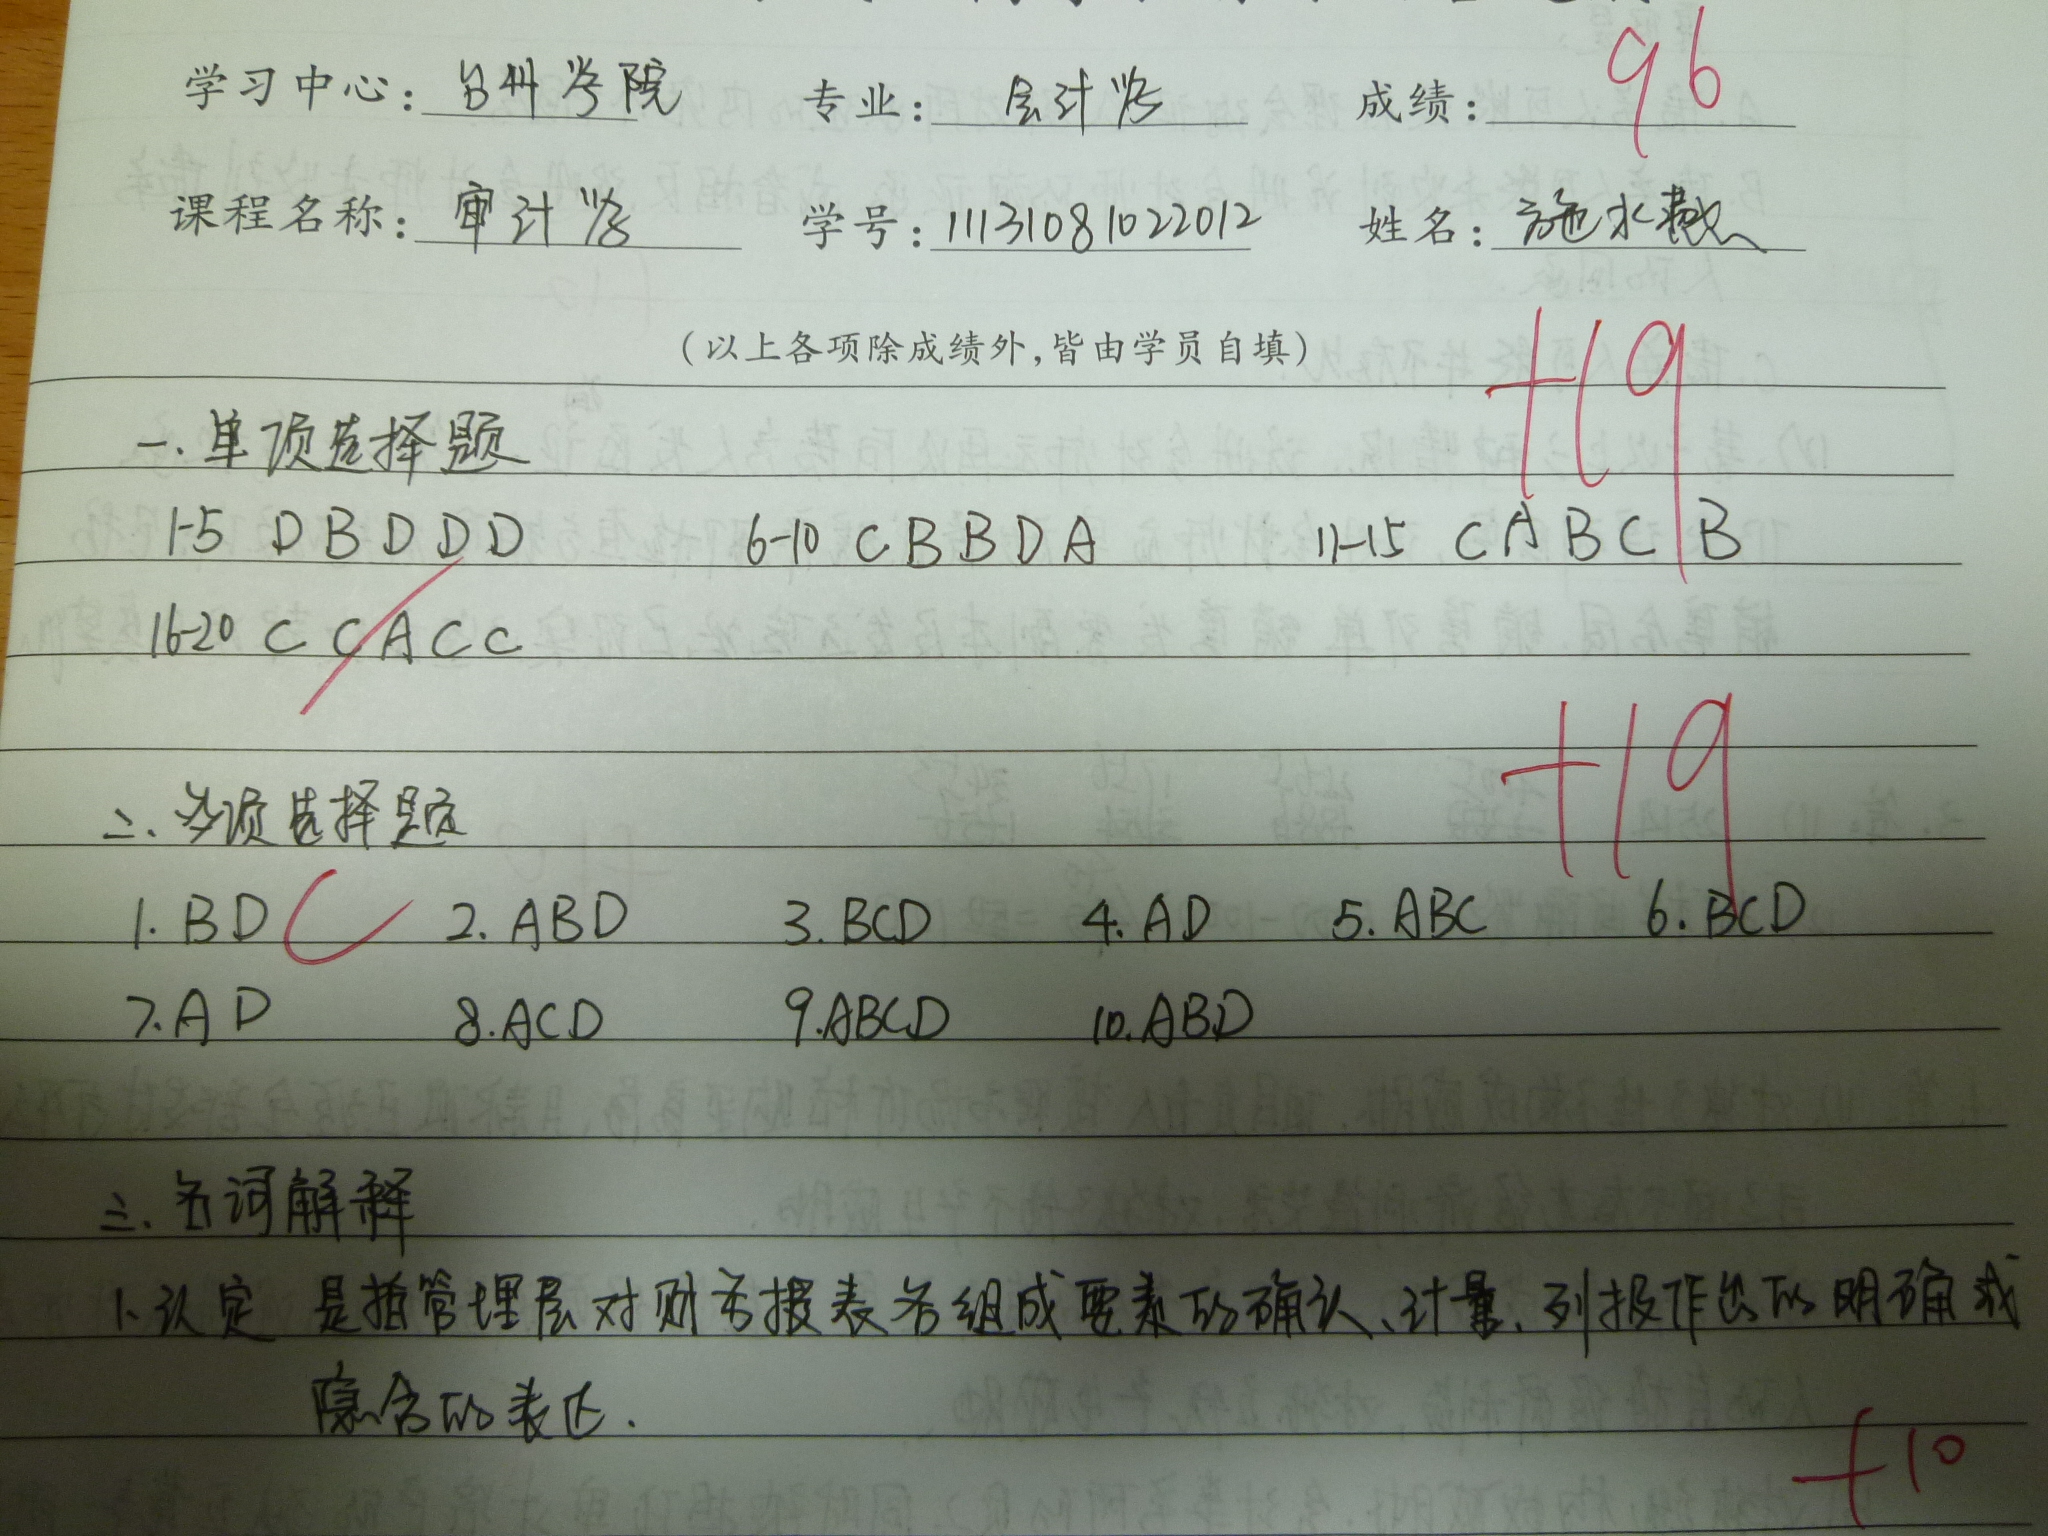 学习中心：台州学院 专业：会计学 成绩：96
课程名称：审计学 学号：11131081022012 姓名：施水
（以上各项除成绩外，皆由学员自填）
+19
一、单项选择题
1-5 D B D D D 6-10 C B B D A 11-15 C A B C B
16-20 C C A C C
+19
二、多项选择题
1. BD 2. ABD 3. BCD 4. AD 5. ABC 6. BCD
7. AD 8. ACD 9. ABCD 10. ABD
三、名词解释
1. 认定 是指管理层对财务报表各组成要素的确认、计量、列报作出的明确或
隐含的表达.
+10